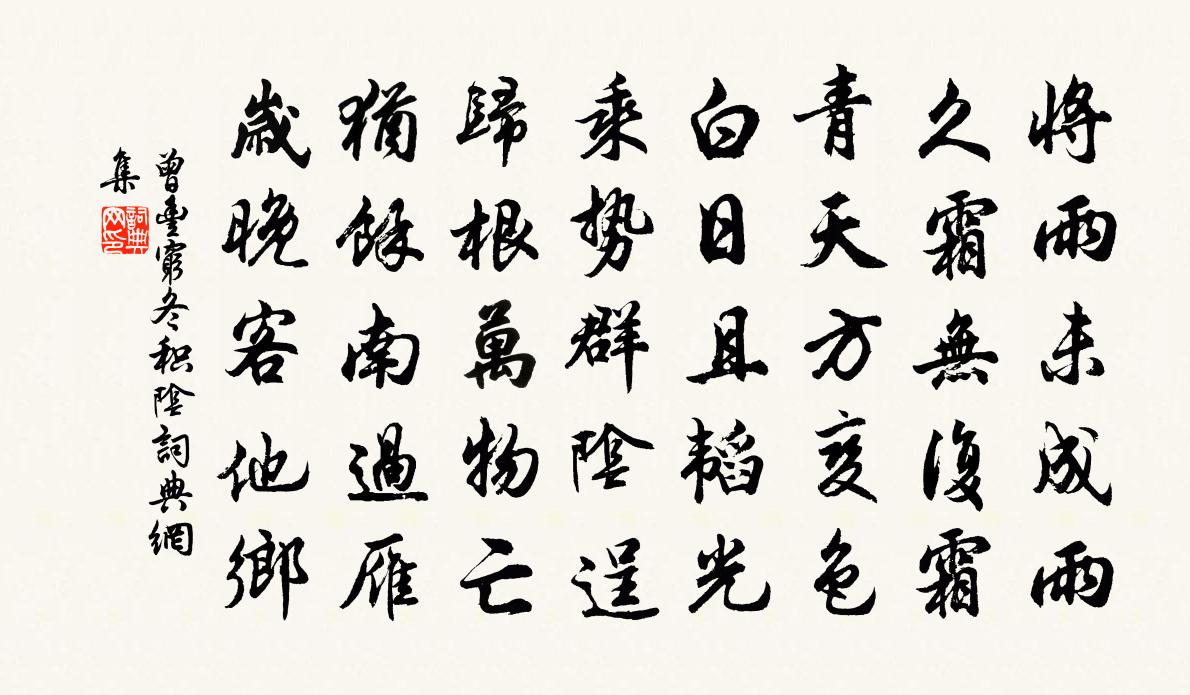 將雨未成雨
久霜無復霜
青天方变色
白日且韜光
乘势群陰逞
歸根萬物亡
猶餘南過雁
歲晚客他鄉
曾豊窮冬积陰詞典網
集
詞典
网印